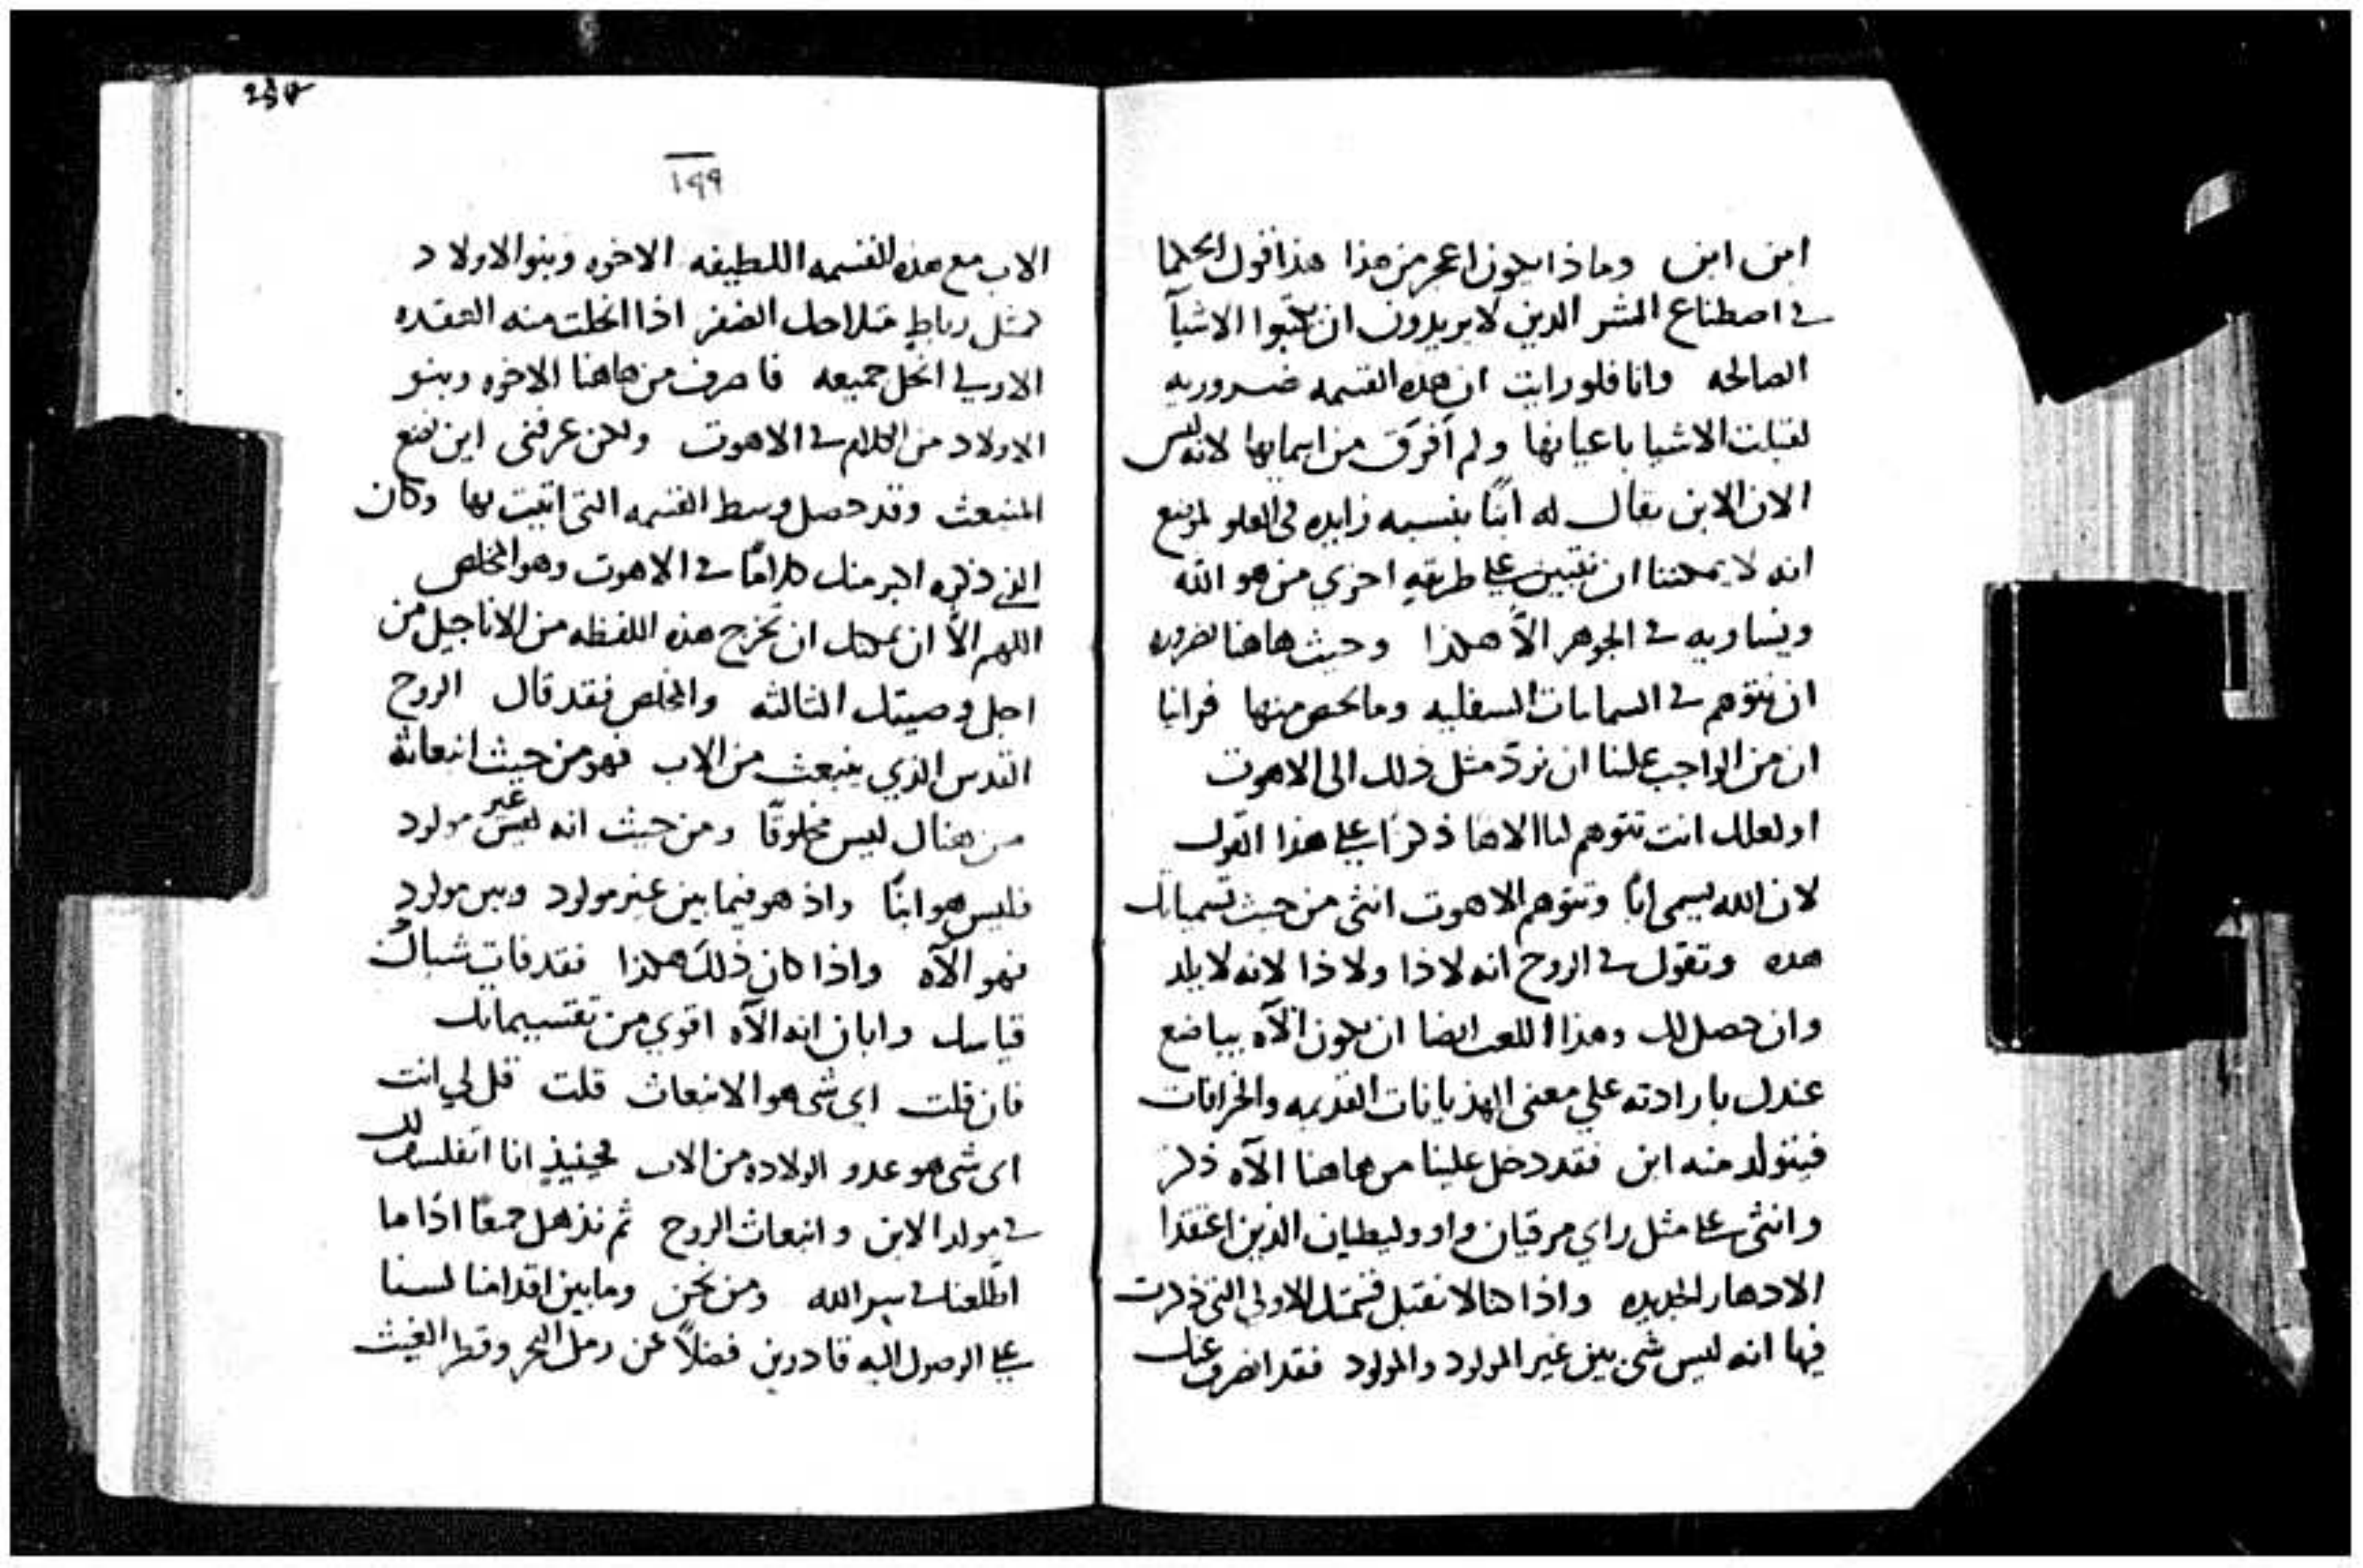 ابن ابن وماذا يكون اعجز من هذا هذا قول الحكما
في اصطناع الشر الذين لا يريدون ان يكتبوا الاشيآ
الصالحه وانا فلو رايت ان هذه القسمه ضروريه
لقبلت الاشيا باعيانها ولم أفرَق من اسمايها لانه ليس
الان الابن يقال له ابنًا بنسبه زايده في العلو لموضع
انه لا يمكننا ان نتبين علي طريقهٍ اخري من هو الله
ويساويه في الجوهر الاّ هكذا وحيث هاهنا ضروره
ان نتوهم في السمايات السفليه وما يخص منها فراينا
ان من الواجب علينا ان نردّ مثل ذلك الى الاهوت
او لعلك انت تتوهم لنا الاهًا ذكرًا علي هذا القول
لان الله يسمى ابًا وتتوهم الاهوت انثى من حيث تسمياتك
هذه وتقول في الروح انه لا ذا ولا ذا لانه لا يلد
وان حصل لك وهذا اللعب ايضا ان يكون الآه يباضع
عندك بارادته علي معنى الهذيانات القديمه والخرافات
فيتولد منه ابن فقد دخل علينا من هاهنا الآه ذكر
وانثى علي مثل راي مرقيان واووليطيان الذين اعتقدا
الادهار الجديده واذا كنا لا نقبل قسمتك الاولي التي ذكرت
فيها انه ليس شى بين غير المولود والمولود فقد انصرف عنك
234
١٩٩
الاب مع هذه القسمه اللطيفه الاخوه وبنو الاولاد
كمثل رباطٍ متداخل الضفر اذا انحلت منه العقده
الاولي انحل جميعه فاصرف من هاهنا الاخوه وبنو
الاولاد من الكلام في الاهوت ولكن عرفنى اين نضع
المنبعث وقد حصل وسط القسمه التي اتيت بها وكان
الذي ذكره اكبر منك كلامًا في الاهوت وهو المخلص
اللهم الاّ ان يمكنك ان تخرج هذه اللفظه من الاناجيل من
اجل وصيتك الثالثه والمخلص فقد قال الروح
القدس الذي ينبعث من الاب فهو من حيث انبعاثه
من هناك ليس مخلوقًا ومن حيث انه ليس غير مولود
فليس هو ابنًا واذ هو فيما بين غير مولود وبين مولود
فهو الآه واذا كان ذلك هكذا فقد فات شباك
قياسك وابان انه الآه اقوي من تقسيماتك
فان قلت اي شى هو الانبعاث قلت قل لي انت
اى شى هو عدو الولاده من الاب فحينيذٍ انا اتفلسف لك
في مولد الابن وانبعاث الروح ثم نذهل جميعًا اذا ما
اطّلعنا في سر الله ومن نحن وما بين اقدامنا لسنا
علي الوصول اليه قادرين فضلاً عن رمل البحر وقطر الغيث